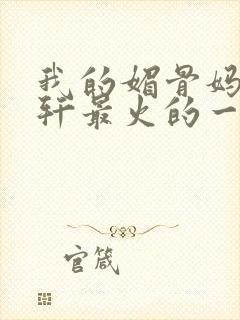 我的媚骨妈
轩最火的一
官箴